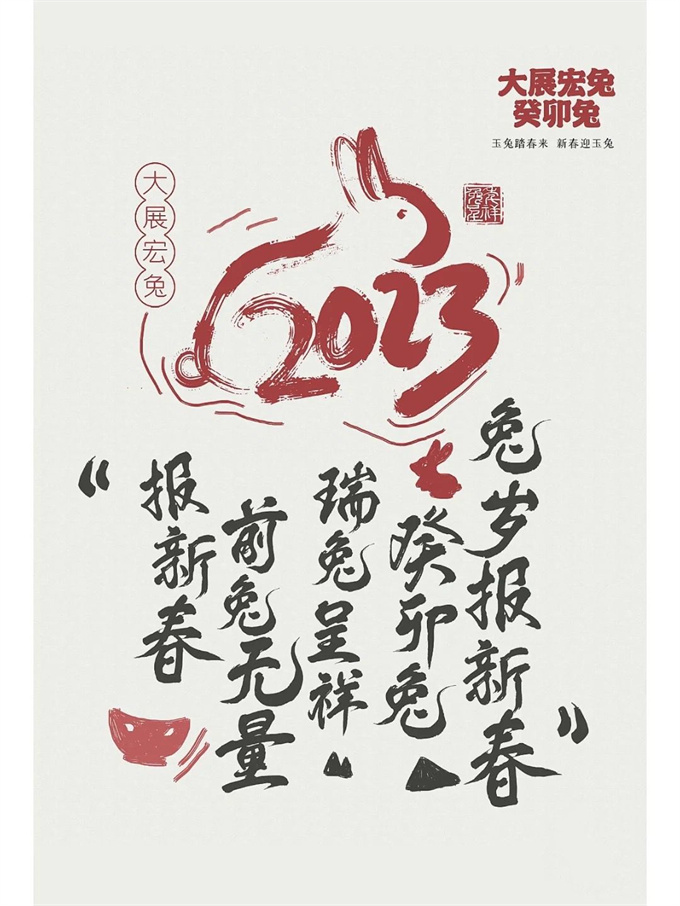 大展宏兔
癸卯兔
玉兔踏春来 新春迎玉兔
大展宏兔
2023
兔岁报新春
癸卯兔
瑞兔呈祥
前兔无量
报新春